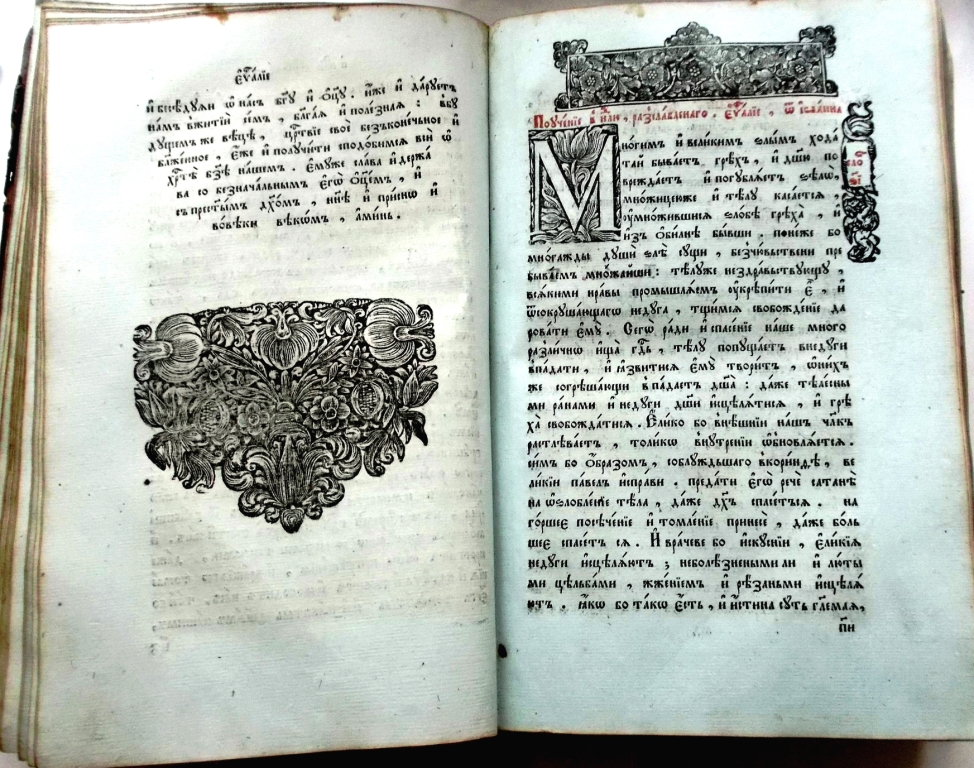 єѵⷢ҇алїе
и҆ бесѣдꙋяи ѡ҆ насъ бг҃ꙋ и҆ ѻ҆ц҃ꙋ . и҆́же и҆ да́рꙋетъ
намъ вжитїи се́мъ , бл҃гая и҆ поле́зная : вбꙋ
дꙋщемъ же вѣцѣ , црⷭ҇твїе своѐ безъконе́чное и҆
блаже́нное , є҆́же и҆ полꙋчи́ти сподо́бимся всѝ ѡ҆
хрⷭ҇тѣ бз҃ѣ нашемъ . є҆мꙋже слава и҆ держа́
ва со безнача́льнымъ є҆гѡ̀ ѻ҆ц҃е́мъ , и҆
съпрест҃ы́мъ дх҃омъ , нн҃ѣ и҆ при́снѡ и҆
вовѣки вѣкѡ́мъ , а҆ми́нь .
Поꙋче́нїе в҆ нⷣлю , разсла́бленнаго . є҆ѵⷢ҇алїе , ѿ і҆ѡа́нна
Мно́гимъ и҆ вели́кимъ ѕлы́мъ хода́
тай быва́етъ грѣ́хъ , и҆ дш҃ꙋ по
врежда́етъ и҆ погꙋбля́етъ ѕѣлѡ̀ ,
мно́жицеюже и҆ тѣлꙋ каса́ется ,
ᲂу҆мно́жившися ѕло́бѣ грѣха̀ , и҆
и҆зъ ѻ҆би́лнѣ бы́вши . поне́же бо
мно́гажды дꙋшѝ ѕлѣ̀ сꙋ́щи , безчю́вьствени пре
быва́емъ мно́жайши : тѣлꙋже нездра́вьствꙋющꙋ ,
вся́кими нра́вы промышля́емъ ᲂу҆крѣпи́ти є҆̀ , и҆
ѿсокрꙋша́ющагѡ недꙋ́га , тщи́мся свобожде́нїе да
рова́ти є҆мꙋ̀ . Сегѡ̀ ра́ди и҆ спасе́нїе на́ше мно́го
разли́чнѡ и҆щѧ̀ гдⷭ҇ь , тѣ́лꙋ попꙋща́етъ внедꙋ́ги
в҆па́дати , и҆ ꙗ҆́звитися є҆мꙋ̀ твори́тъ , ѡ҆ни́хъ
же согрѣша́ющи в҆па́даетъ дш҃а̀ : да́же тѣле́сны
ми ра́нами и҆ недꙋ́ги дш҃и и҆сцѣля́тися , и҆ грѣ
ха̀ свобожда́тися . Е҆ли́ко бо внѣ́шнїи на́шъ чл҃къ
растлѣва́етъ , толи́кѡ внꙋ́тренїи ѡ҆бновля́ется .
си́мъ бо ѻ҆́бразомъ , соблꙋ́ждьшаго вкори́нѳѣ , ве
ли́кїи па́велъ и҆спра́ви . преда́ти є҆гѡ̀ рече̏ сатанѣ̀
на ѡ҆ѕлобле́нїе тѣ́ла , да́же дх҃ъ спасе́тъся . на
го́ршее посѣче́нїе и҆ томле́нїе принесѐ , да́же бо́ль
шее спасе́тъ ся . И҆ врачеве бо и҆скꙋ́снїи , є҆ли́кїя
недꙋ́ги и҆сцѣля́ютъ ; неболѣ́знеными ли и҆ лю́ты
ми цѣльба́ми , жже́нїемъ и҆ рѣ́заньми и҆сцѣля́
ютъ . ꙗ҆́кѡ бо та́кѡ є҆́сть , и҆ и҆́стина сꙋть гл҃емая ,
п҃и